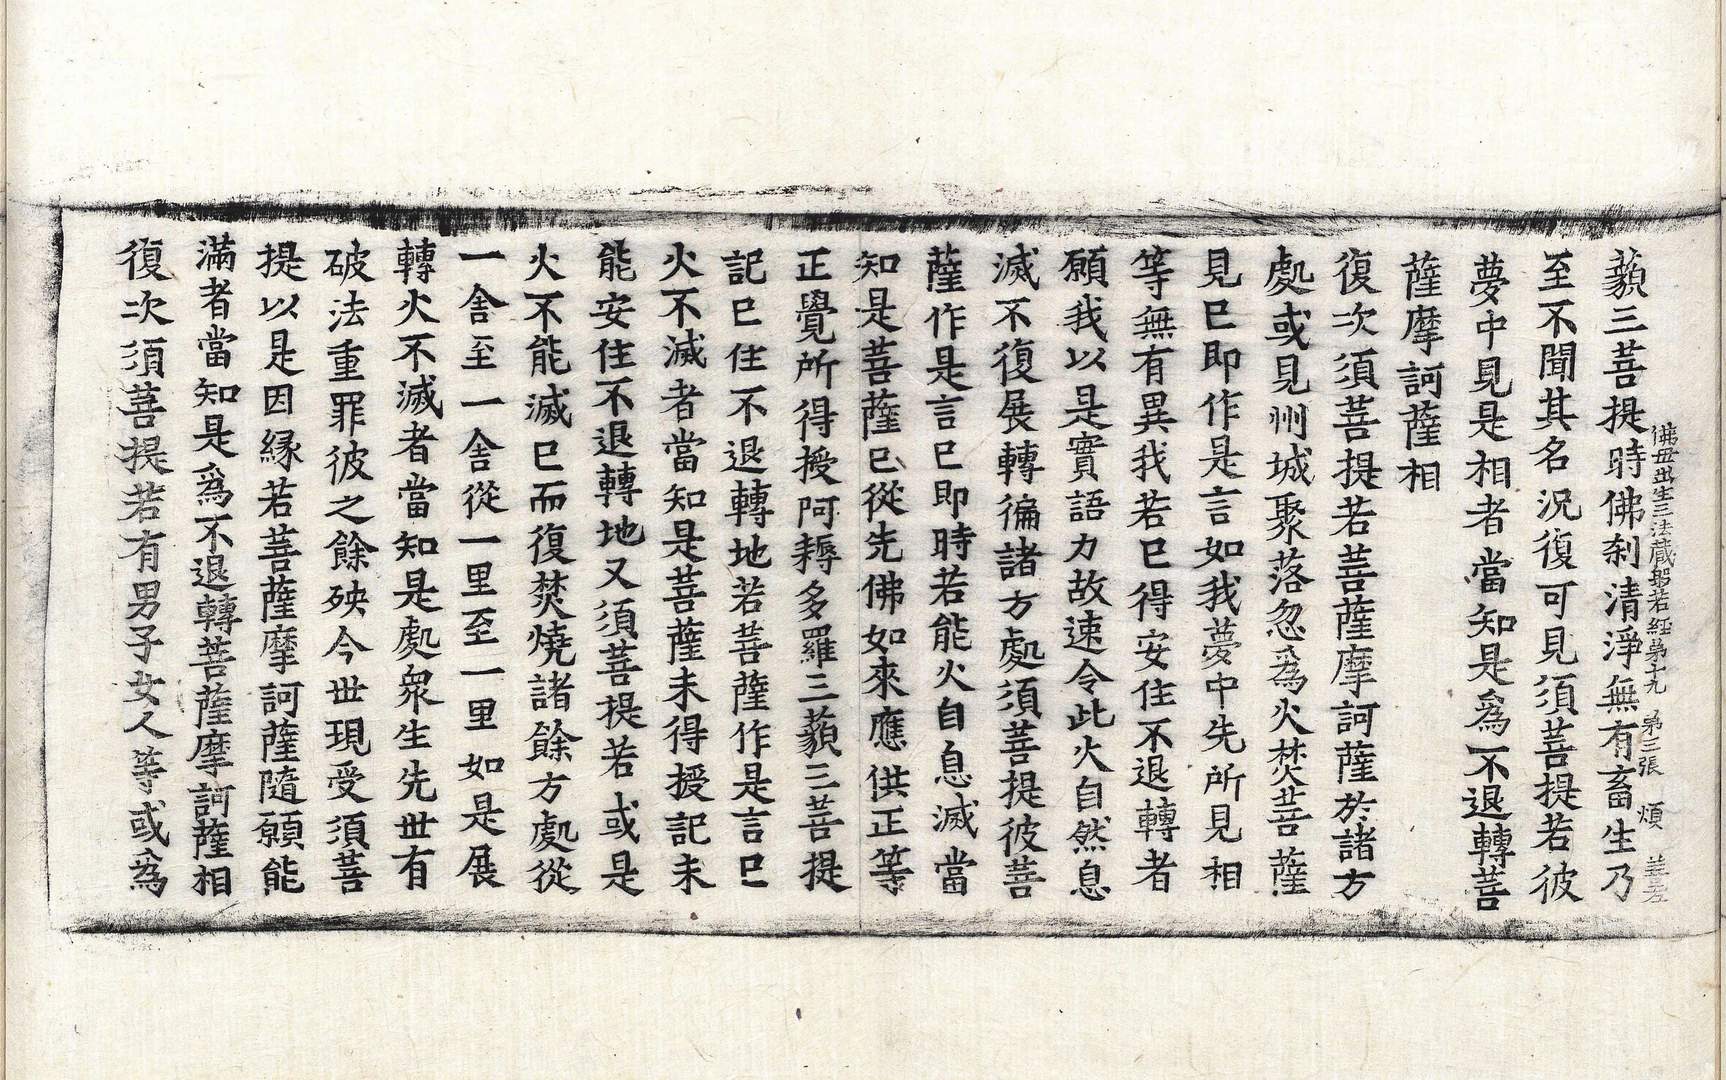 佛母出生三法藏般若經第十九　第三張　煩
藐三菩提時佛刹清淨無有畜生乃
至不聞其名況復可見須菩提若彼
夢中見是相者當知是爲不退轉菩
薩摩訶薩相
復次須菩提若菩薩摩訶薩於諸方
處或見州城聚落忽爲火焚菩薩
見已即作是言如我夢中先所見相
等無有異我若已得安住不退轉者
願我以是實語力故速令此火自然息
滅不復展轉徧諸方處須菩提彼菩
薩作是言已即時若能火自息滅當
知是菩薩已從先佛如來應供正等
正覺所得授阿耨多羅三藐三菩提
記已住不退轉地若菩薩作是言已
火不滅者當知是菩薩未得授記未
能安住不退轉地又須菩提若或是
火不能滅已而復焚燒諸餘方處從
一舍至一舍從一里至一里如是展
轉火不滅者當知是處衆生先世有
破法重罪彼之餘殃今世現受須菩
提以是因緣若菩薩摩訶薩隨願能
滿者當知是爲不退轉菩薩摩訶薩相
復次須菩提若有男子女人等或爲